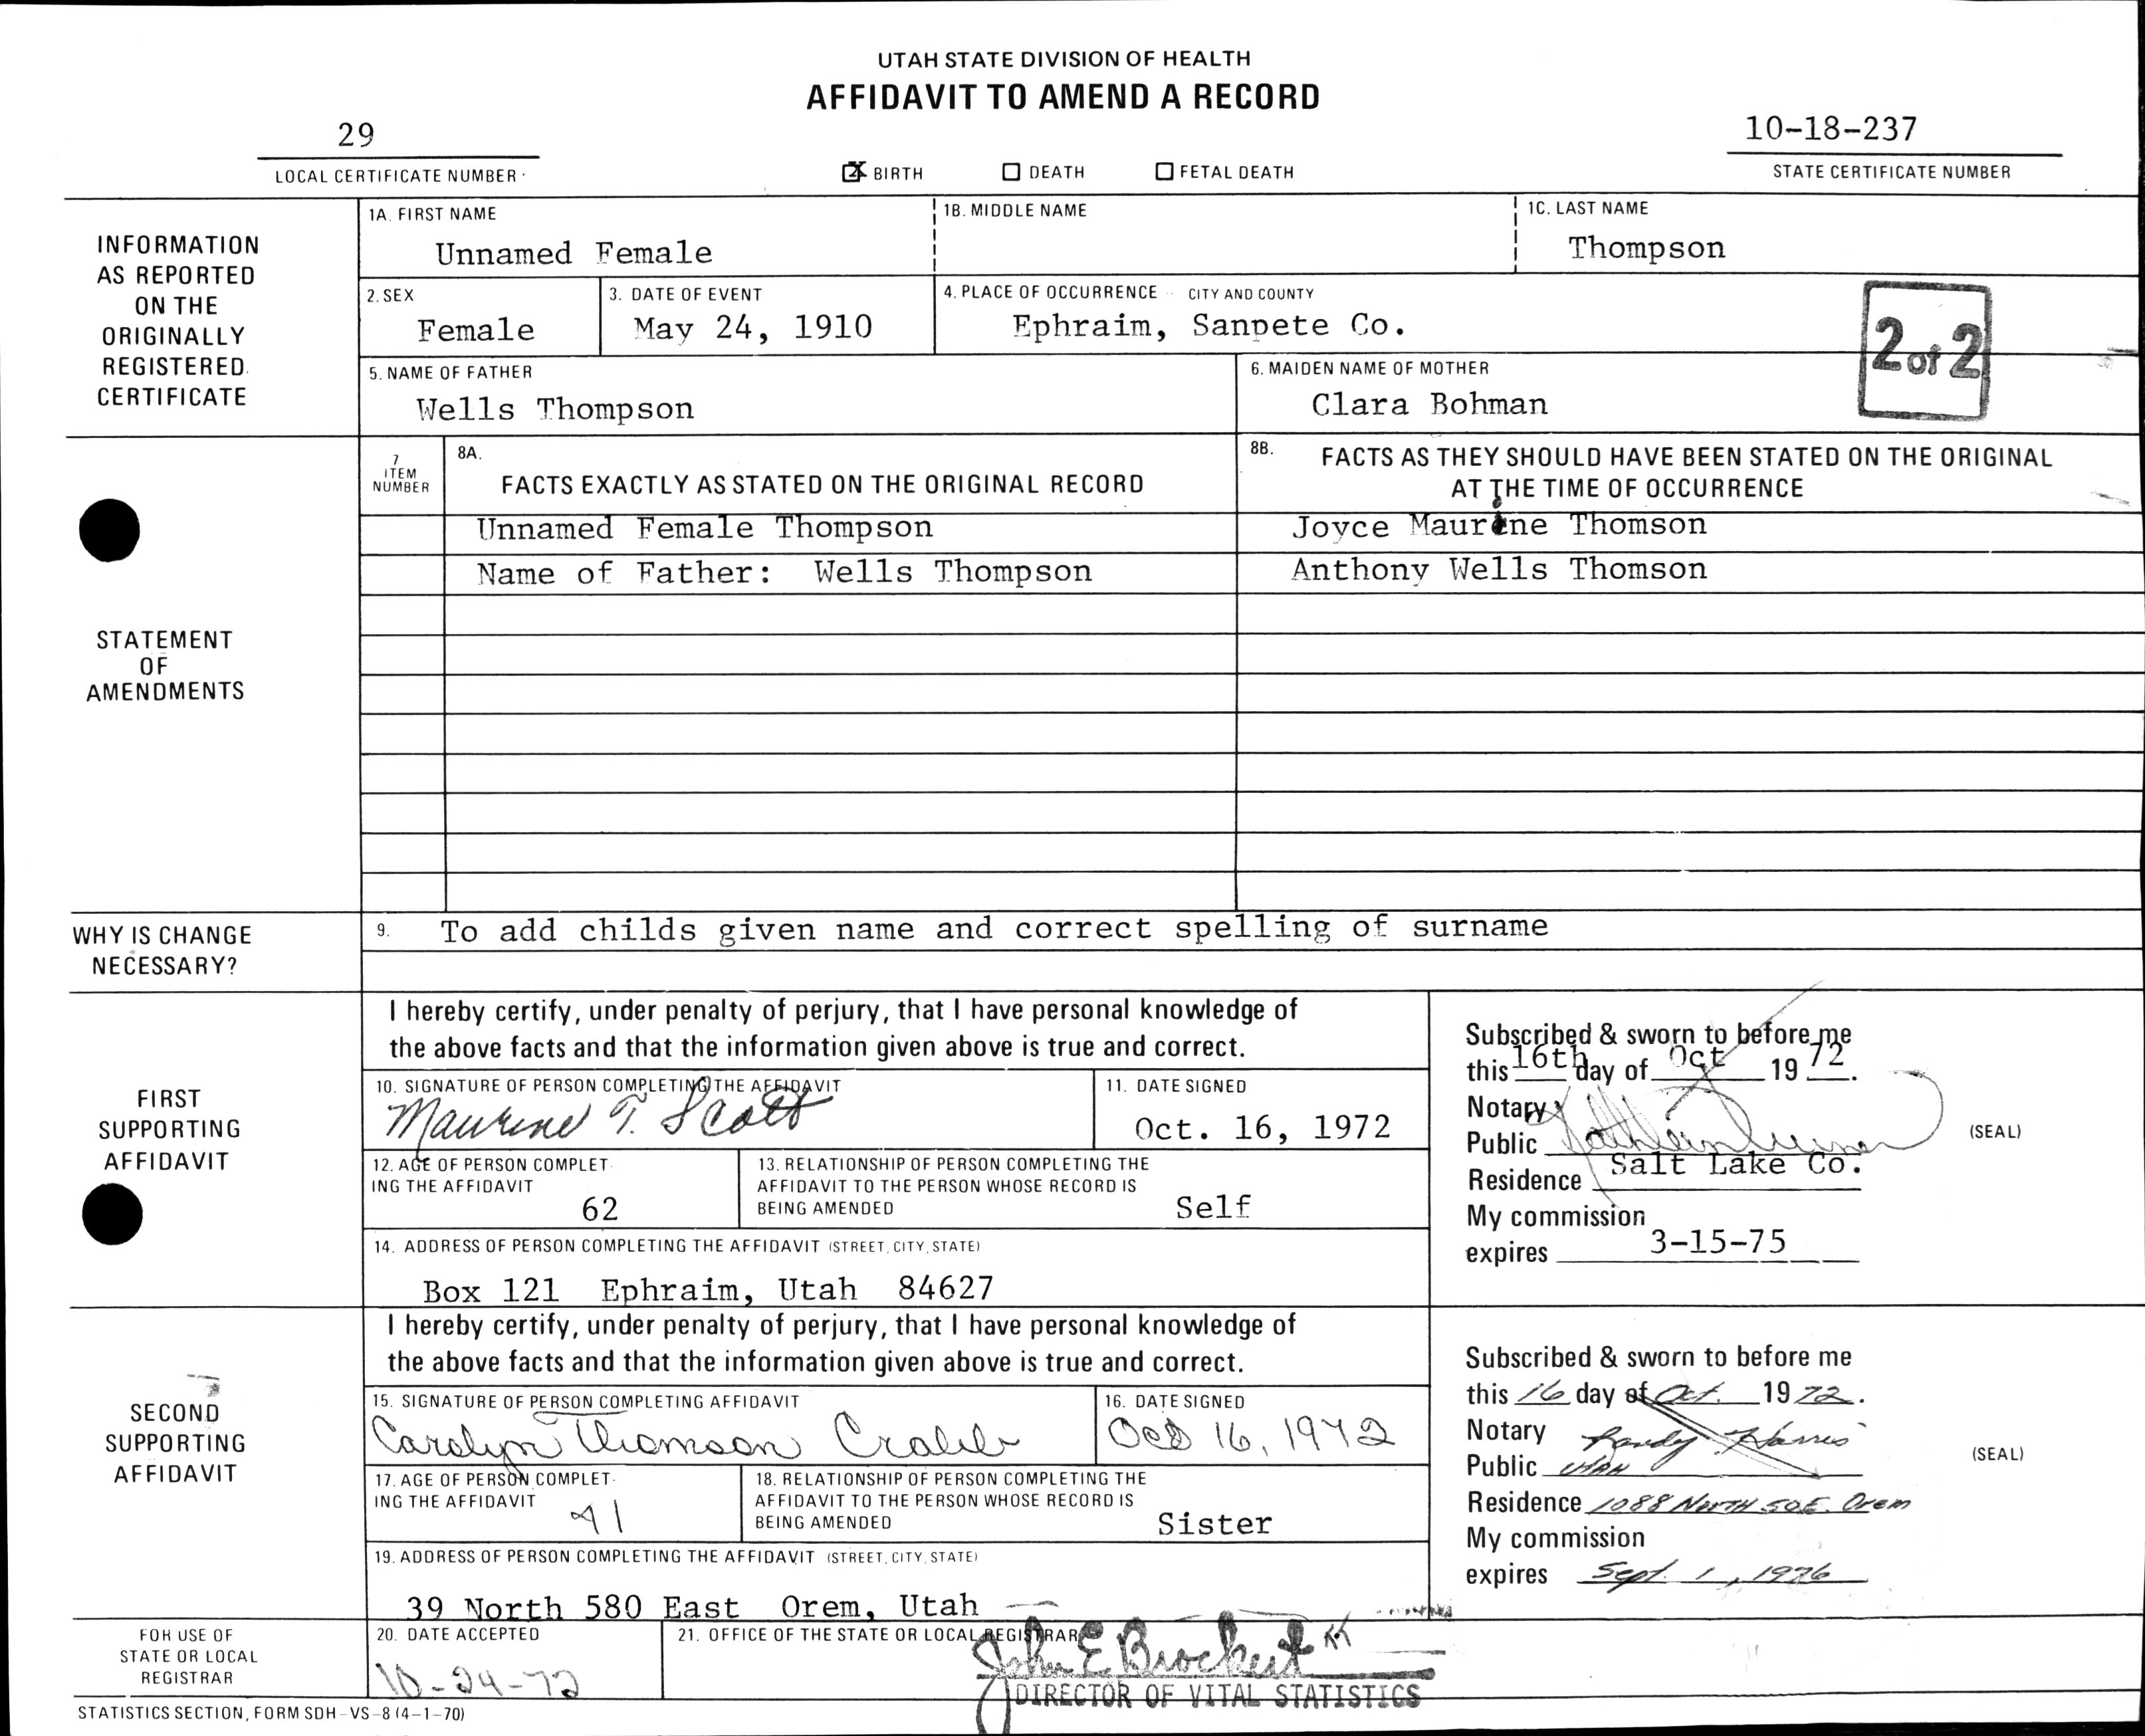 UTAH STATE DIVISION OF HEALTH
AFFIDAVIT TO AMEND A RECORD
29
10-18-237
LOCAL CERTIFICATE NUMBER
X BIRTH
DEATH
FETAL DEATH
STATE CERTIFICATE NUMBER
INFORMATION
AS REPORTED
ON THE
ORIGINALLY
REGISTERED
CERTIFICATE
1A. FIRST NAME
Unnamed Female
1B. MIDDLE NAME
1C. LAST NAME
Thompson
2. SEX
Female
3. DATE OF EVENT
May 24, 1910
4. PLACE OF OCCURRENCE - CITY AND COUNTY
Ephraim, Sanpete Co.
2 of 2
5. NAME OF FATHER
Wells Thompson
6. MAIDEN NAME OF MOTHER
Clara Bohman
STATEMENT
OF
AMENDMENTS
7
ITEM
NUMBER
8A.
FACTS EXACTLY AS STATED ON THE ORIGINAL RECORD
8B.
FACTS AS THEY SHOULD HAVE BEEN STATED ON THE ORIGINAL
AT THE TIME OF OCCURRENCE
Unnamed Female Thompson
Joyce Maurine Thomson
Name of Father: Wells Thompson
Anthony Wells Thomson
WHY IS CHANGE
NECESSARY?
9. To add childs given name and correct spelling of surname
FIRST
SUPPORTING
AFFIDAVIT
I hereby certify, under penalty of perjury, that I have personal knowledge of
the above facts and that the information given above is true and correct.
10. SIGNATURE OF PERSON COMPLETING THE AFFIDAVIT
Maurine T. Scott
11. DATE SIGNED
Oct. 16, 1972
12. AGE OF PERSON COMPLET-
ING THE AFFIDAVIT
62
13. RELATIONSHIP OF PERSON COMPLETING THE
AFFIDAVIT TO THE PERSON WHOSE RECORD IS
BEING AMENDED
Self
14. ADDRESS OF PERSON COMPLETING THE AFFIDAVIT (STREET, CITY, STATE)
Box 121 Ephraim, Utah 84627
Subscribed & sworn to before me
this 16th day of Oct 19 72.
Notary
Public Kathleen
(SEAL)
Residence Salt Lake Co.
My commission
expires 3-15-75
SECOND
SUPPORTING
AFFIDAVIT
I hereby certify, under penalty of perjury, that I have personal knowledge of
the above facts and that the information given above is true and correct.
15. SIGNATURE OF PERSON COMPLETING AFFIDAVIT
Carolyn Thomson Crabb
16. DATE SIGNED
Oct 16, 1972
17. AGE OF PERSON COMPLET-
ING THE AFFIDAVIT
41
18. RELATIONSHIP OF PERSON COMPLETING THE
AFFIDAVIT TO THE PERSON WHOSE RECORD IS
BEING AMENDED
Sister
19. ADDRESS OF PERSON COMPLETING THE AFFIDAVIT (STREET, CITY, STATE)
39 North 580 East Orem, Utah
Subscribed & sworn to before me
this 16 day of Oct. 1972.
Notary Randy Harris
Public Utah
(SEAL)
Residence 1088 North 50 E. Orem
My commission
expires Sept. 1, 1976
FOR USE OF
STATE OR LOCAL
REGISTRAR
20. DATE ACCEPTED
10-24-72
21. OFFICE OF THE STATE OR LOCAL REGISTRAR
John E Brockert
DIRECTOR OF VITAL STATISTICS
STATISTICS SECTION, FORM SDH-VS-8 (4-1-70)